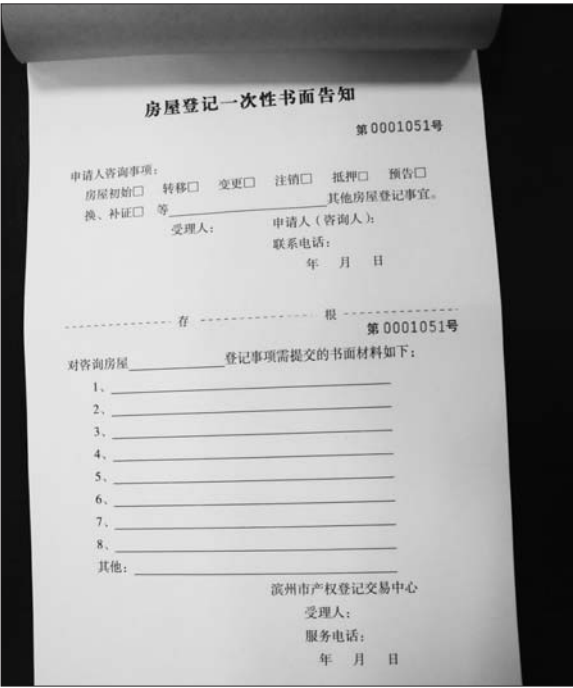 房屋登记一次性书面告知
第0001051号
申请人咨询事项：
房屋初始□ 转移□ 变更□ 注销□ 抵押□ 预告□
换、补证□ 等____________其他房屋登记事宜。
受理人： 申请人（咨询人）：
联系电话：
年 月 日
存 根
第0001051号
对咨询房屋____________登记事项需提交的书面材料如下：
1、
2、
3、
4、
5、
6、
7、
8、
其他：
滨州市产权登记交易中心
受理人：
服务电话：
年 月 日